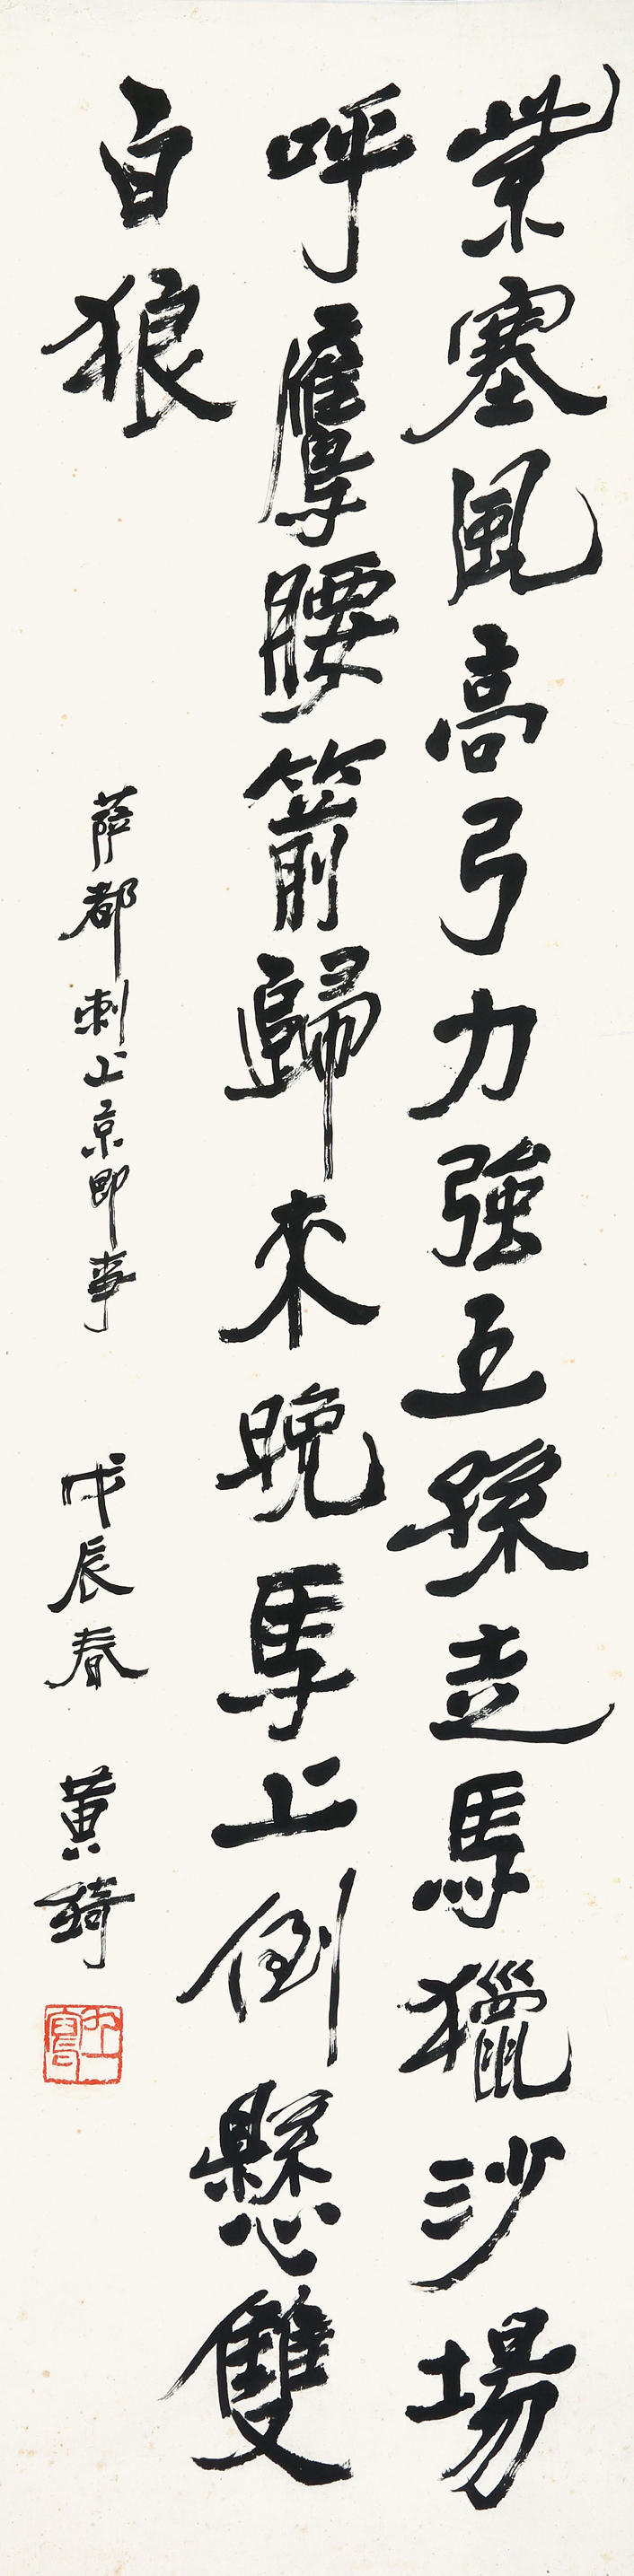 紫塞風高弓力強王孫走馬獵沙場
呼鷹腰箭歸來晚馬上倒懸雙
白狼
薩都剌上京即事 戊辰春 黃綺